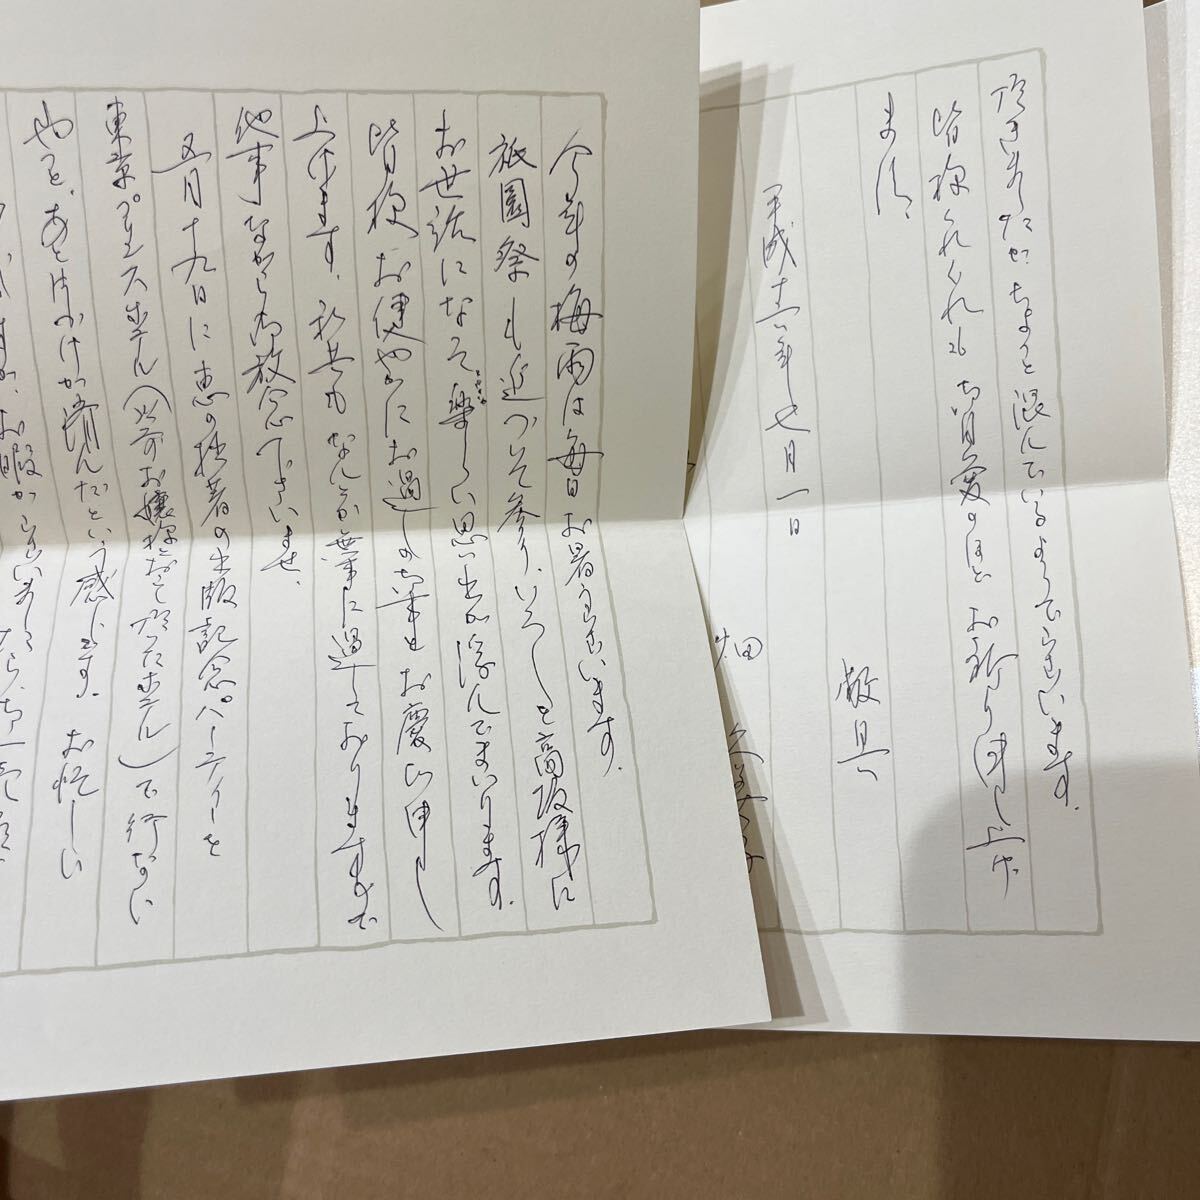 今年の梅雨は毎日お暑うございます。
祇園祭も近づいて参り、いろいろと高坂様に
お世話になって楽しい思い出が浮んでまいります。
皆様お健やかにお過しの御事とお慶び申し
上げます。私共もなんとか無事に過しておりますので
他事ながら御放念下さいませ。
五月十九日に恵の拙著の出版記念パーティーを
東京プリンスホテル(以前お嬢様と お ホテル)で行ない
やっと、あと片づけが済んだという感じです。お忙しい
お暇がございましたら、御一
頂きましたが、ちょっと混んでいるようでございます。
皆様くれぐれも御自愛のほどお祈り申し上げ
ます。
敬具
平成十一年七月一日
畑